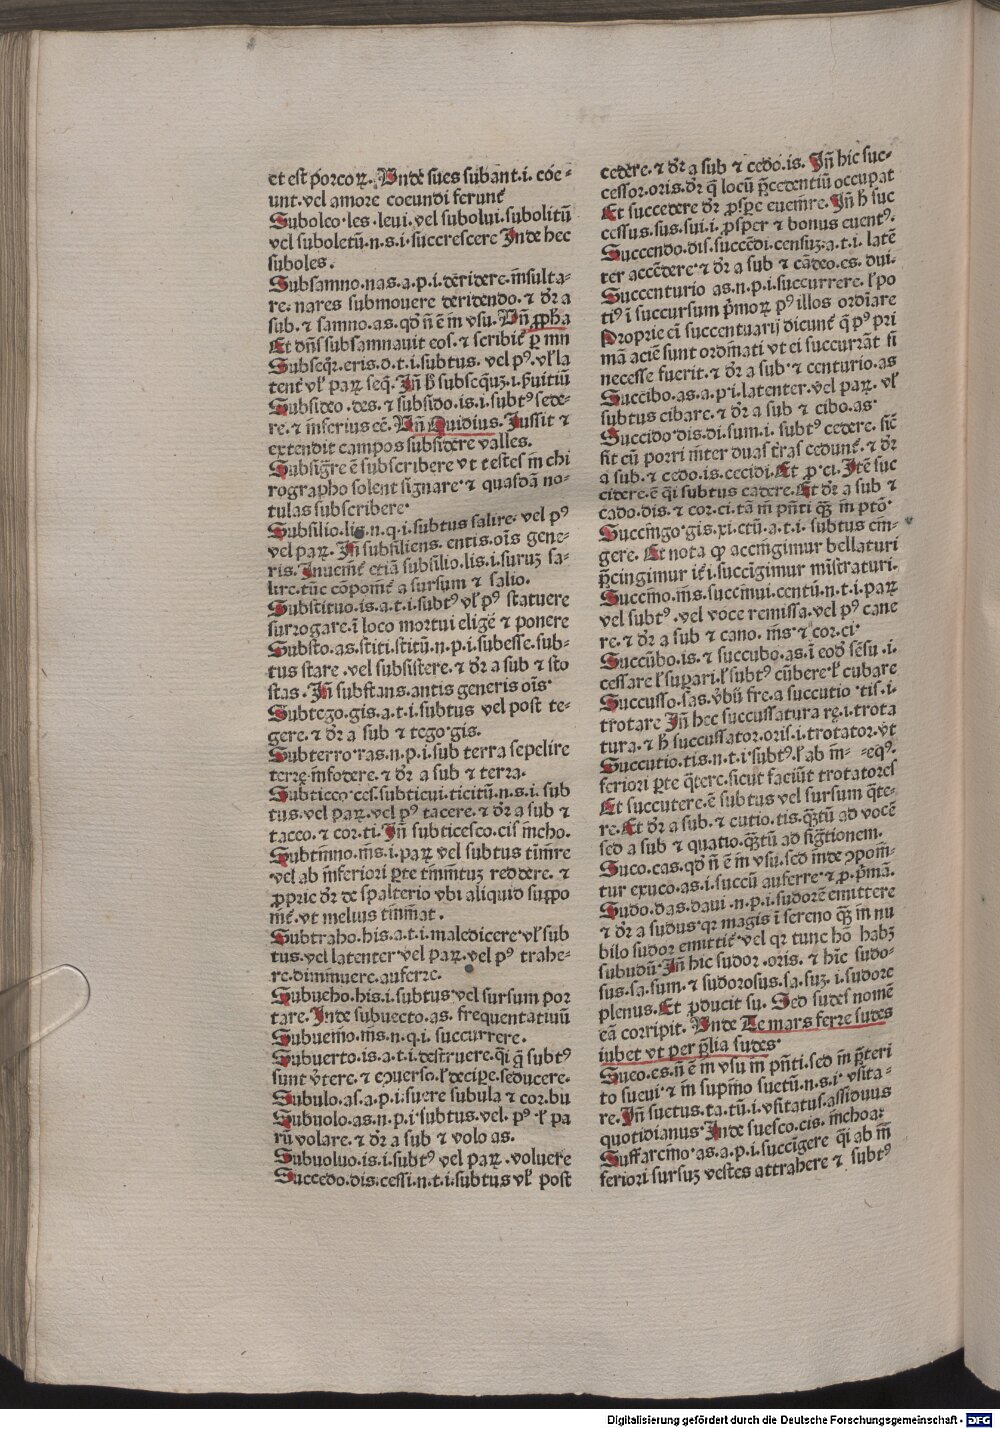 et est porcoꝝ. Vnde sues subant .i. coe-
unt. vel amore coeundi ferunt̃
Suboleo. les. leui. vel subolui. subolitū
vel suboletū. n. s. i. succrescere Inde hec
suboles.
Subsanno. nas. a. p. i. deridere. insulta-
re. nares submouere deridendo. ⁊ dr̄ a
sub. ⁊ sanno. as. qd̓ nō ē in vsu. Vn̄ ꝓpha
Et dn̄s subsannauit eos. ⁊ scribit̃ ꝑ nm
Subseqr̃. eris. d. t. i. subtus. vel pꝰ. vl̓ la
tent̃ vl̓ paꝝ seq̄. Jn̄ h̓ subseq̄uȝ. i. ẜuitiū
Subsideo. des. ⁊ subsido. is. i. subtꝰ sede-
re. ⁊ inferius eē. Vn̄ Ouidius. Jussit ⁊
extendit campos subsidere valles.
Subsigr̄e ē subscribere vt testes in chi
rographo solent signare. ⁊ quasdā no-
tulas subscribere.
Subsilio. lis. n. q. i. subtus salire. vel pꝰ
vel paꝝ. Jn̄ subsiliens. entis. oīs gene-
ris. Jnuenit̃ etiā subsilio. lis. i. suruȝ sa-
lire. tūc cōponit̃ a sursum ⁊ salio.
Substituo. is. a. t. i. subtꝰ vl̓ pꝰ statuere
surrogare. ī loco mortui eligē ⁊ ponere
Substo. as. stiti. stitū. n. p. i. subesse. sub-
tus stare. vel subsistere. ⁊ dr̄ a sub ⁊ sto
stas. Jn̄ substans. antis generis oīs.
Subtego. gis. a. t. i. subtus vel post te-
gere. ⁊ dr̄ a sub ⁊ tego. gis.
Subterro. ras. n. p. i. sub terra sepelire
terrę infodere. ⁊ dr̄ a sub ⁊ terra.
Subticeo. ces. subticui. ticitū. n. s. i. sub
tus. vel paꝝ. vel pꝰ tacere. ⁊ dr̄ a sub ⁊
taceo. ⁊ cor. ti. Jn̄ subticesco. cis incho.
Subtinno. nis. i. paꝝ vel subtus tinnire
vel ab inferiori ꝑte tinnituȝ reddere. ⁊
ꝓprie dr̄ de spalterio vbi aliquid suppo
nit̃. vt melius tinniat.
Subtraho. his. a. t. i. maledicere. vl̓ sub
tus. vel latenter vel paꝝ. vel pꝰ trahe-
re. diminuere. auferre.
Subueho. his. i. subtus vel sursum por
tare. Jnde subuecto. as. frequentatiuū
Subuenio. nis. n. q. i. succurrere.
Subuerto. is. a. t. i. destruere. qi q̄ subtꝰ
sunt v̓tere. ⁊ ecōuerso. l̓ decipe. seducere.
Subulo. as. a. p. i. suere subula ⁊ cor. bu
Subuolo. as. n. p. i. subtus. vel. pꝰ. l̓ pa
rū volare. ⁊ dr̄ a sub ⁊ volo as.
Subuoluo. is. i. subtꝰ vel paꝝ. voluere
Succedo. dis. cessi. n. t. i. subtus vl̓ post
cedere. ⁊ dr̄ a sub ⁊ cedo. is. Jn̄ hic suc-
cessor. oris. dr̄ q̄ locū p̄cedentiū occupat
Et succedere dr̄ ꝓspe euenire. Jn̄ h̓ suc
cessus. sus. sui. i. ꝓsper ⁊ bonus euentꝰ.
Succendo. dis. succēdi. censuȝ. a. t. i. latē
ter accēdere. ⁊ dr̄ a sub ⁊ cādeo. es. dui.
Succenturio as. n. p. i. succurrere. l̓ po
tiꝰ ī succursum p̓moꝝ pꝰ illos ordiare
Proprie eī succentuarij dicunt̃ q̄ pꝰ pri
mā aciē sunt ordinati vt ei succurrāt si
necesse fuerit. ⁊ dr̄ a sub. ⁊ centurio. as
Succibo. as. a. p. i. latenter. vel paꝝ. vl̓
subtus cibare. ⁊ dr̄ a sub ⁊ cibo. as.
Succido. dis. di. sum. i. subtꝰ cedere. sic̄
fit cū porri inter duas tr̄as cedunt̃. ⁊ dr̄
a sub. ⁊ cedo. is. cecidi. Et ꝓ. ci. Jtē suc
cidere. ē qi subtus cadere. Et dr̄ a sub ⁊
cado. dis. ⁊ cor. ci. tā in pn̄ti qȝ in ptō.
Succingo. gis. xi. ctū. a. t. i. subtus cin-
gere. Et nota ꝙ accingimur bellaturi
p̄cingimur it̃i. succīgimur ministraturi.
Succino. nis. succinui. centū. n. t. i. paꝝ
vel subtꝰ. vel voce remissa. vel pꝰ cane
re. ⁊ dr̄ a sub ⁊ cano. nis. ⁊ cor. ci.
Succūbo. is. ⁊ succubo. as. ī eod̓ sēsu. i.
cessare l̓ supari. l̓ subtꝰ cūbere. l̓ cubare
Succusso. sas. v̓bū fre. a succutio. tis. i.
trotare Jn̄ hec succussatura rę. i. trota
tura. ⁊ h̓ succussator. oris. i. trotator. vt
Succutio. tis. n. t. i. subtꝰ. l̓ ab in- eqꝰ.
feriori ꝑte q̄tere. sicut faciūt trotatores
Et succutere. ē subtus vel sursum q̄te-
re. Et dr̄ a sub. ⁊ cutio. tis. qȝtū ad vocē
sed a sub ⁊ quatio. qȝtū ad sig̃tionem.
Suco. cas. qd̓ nō ē in vsu. sed inde ↄponi-
tur exuco. as. i. succū auferre ⁊ ꝓ. p̓mā.
Sudo. das. daui. n. p. i. sudorē emittere
⁊ dr̄ a sudus. qr magis ī sereno qȝ in nu
bilo sudor emittit̃. vel qr tunc hō habȝ
subudū. Jn̄ hic sudor. oris. ⁊ hīc sudo-
sus. sa. sum. ⁊ sudorosus. sa. suȝ. i. sudore
plenus. Et ꝓducit su. Sed sudes nomē
eā corripit. Vnde Te mars ferre sudes
iubet vt per p̄lia sudes.
Sueo. es. nō ē in vsu in pn̄ti. sed in p̄teri
to sueui. ⁊ in supino suetū. n. s. i. vsita-
re. Jn̄ suetus. ta. tū. i. vsitatus. assiduus
quotidianus. Jnde suesco. cis. inchoaꝝ
Suffarcino. as. a. p. i. succīgere qi ab in
feriori sursuȝ vestes attrahere ⁊ subtꝰ
Digitalisierung gefördert durch die Deutsche Forschungsgemeinschaft - DFG